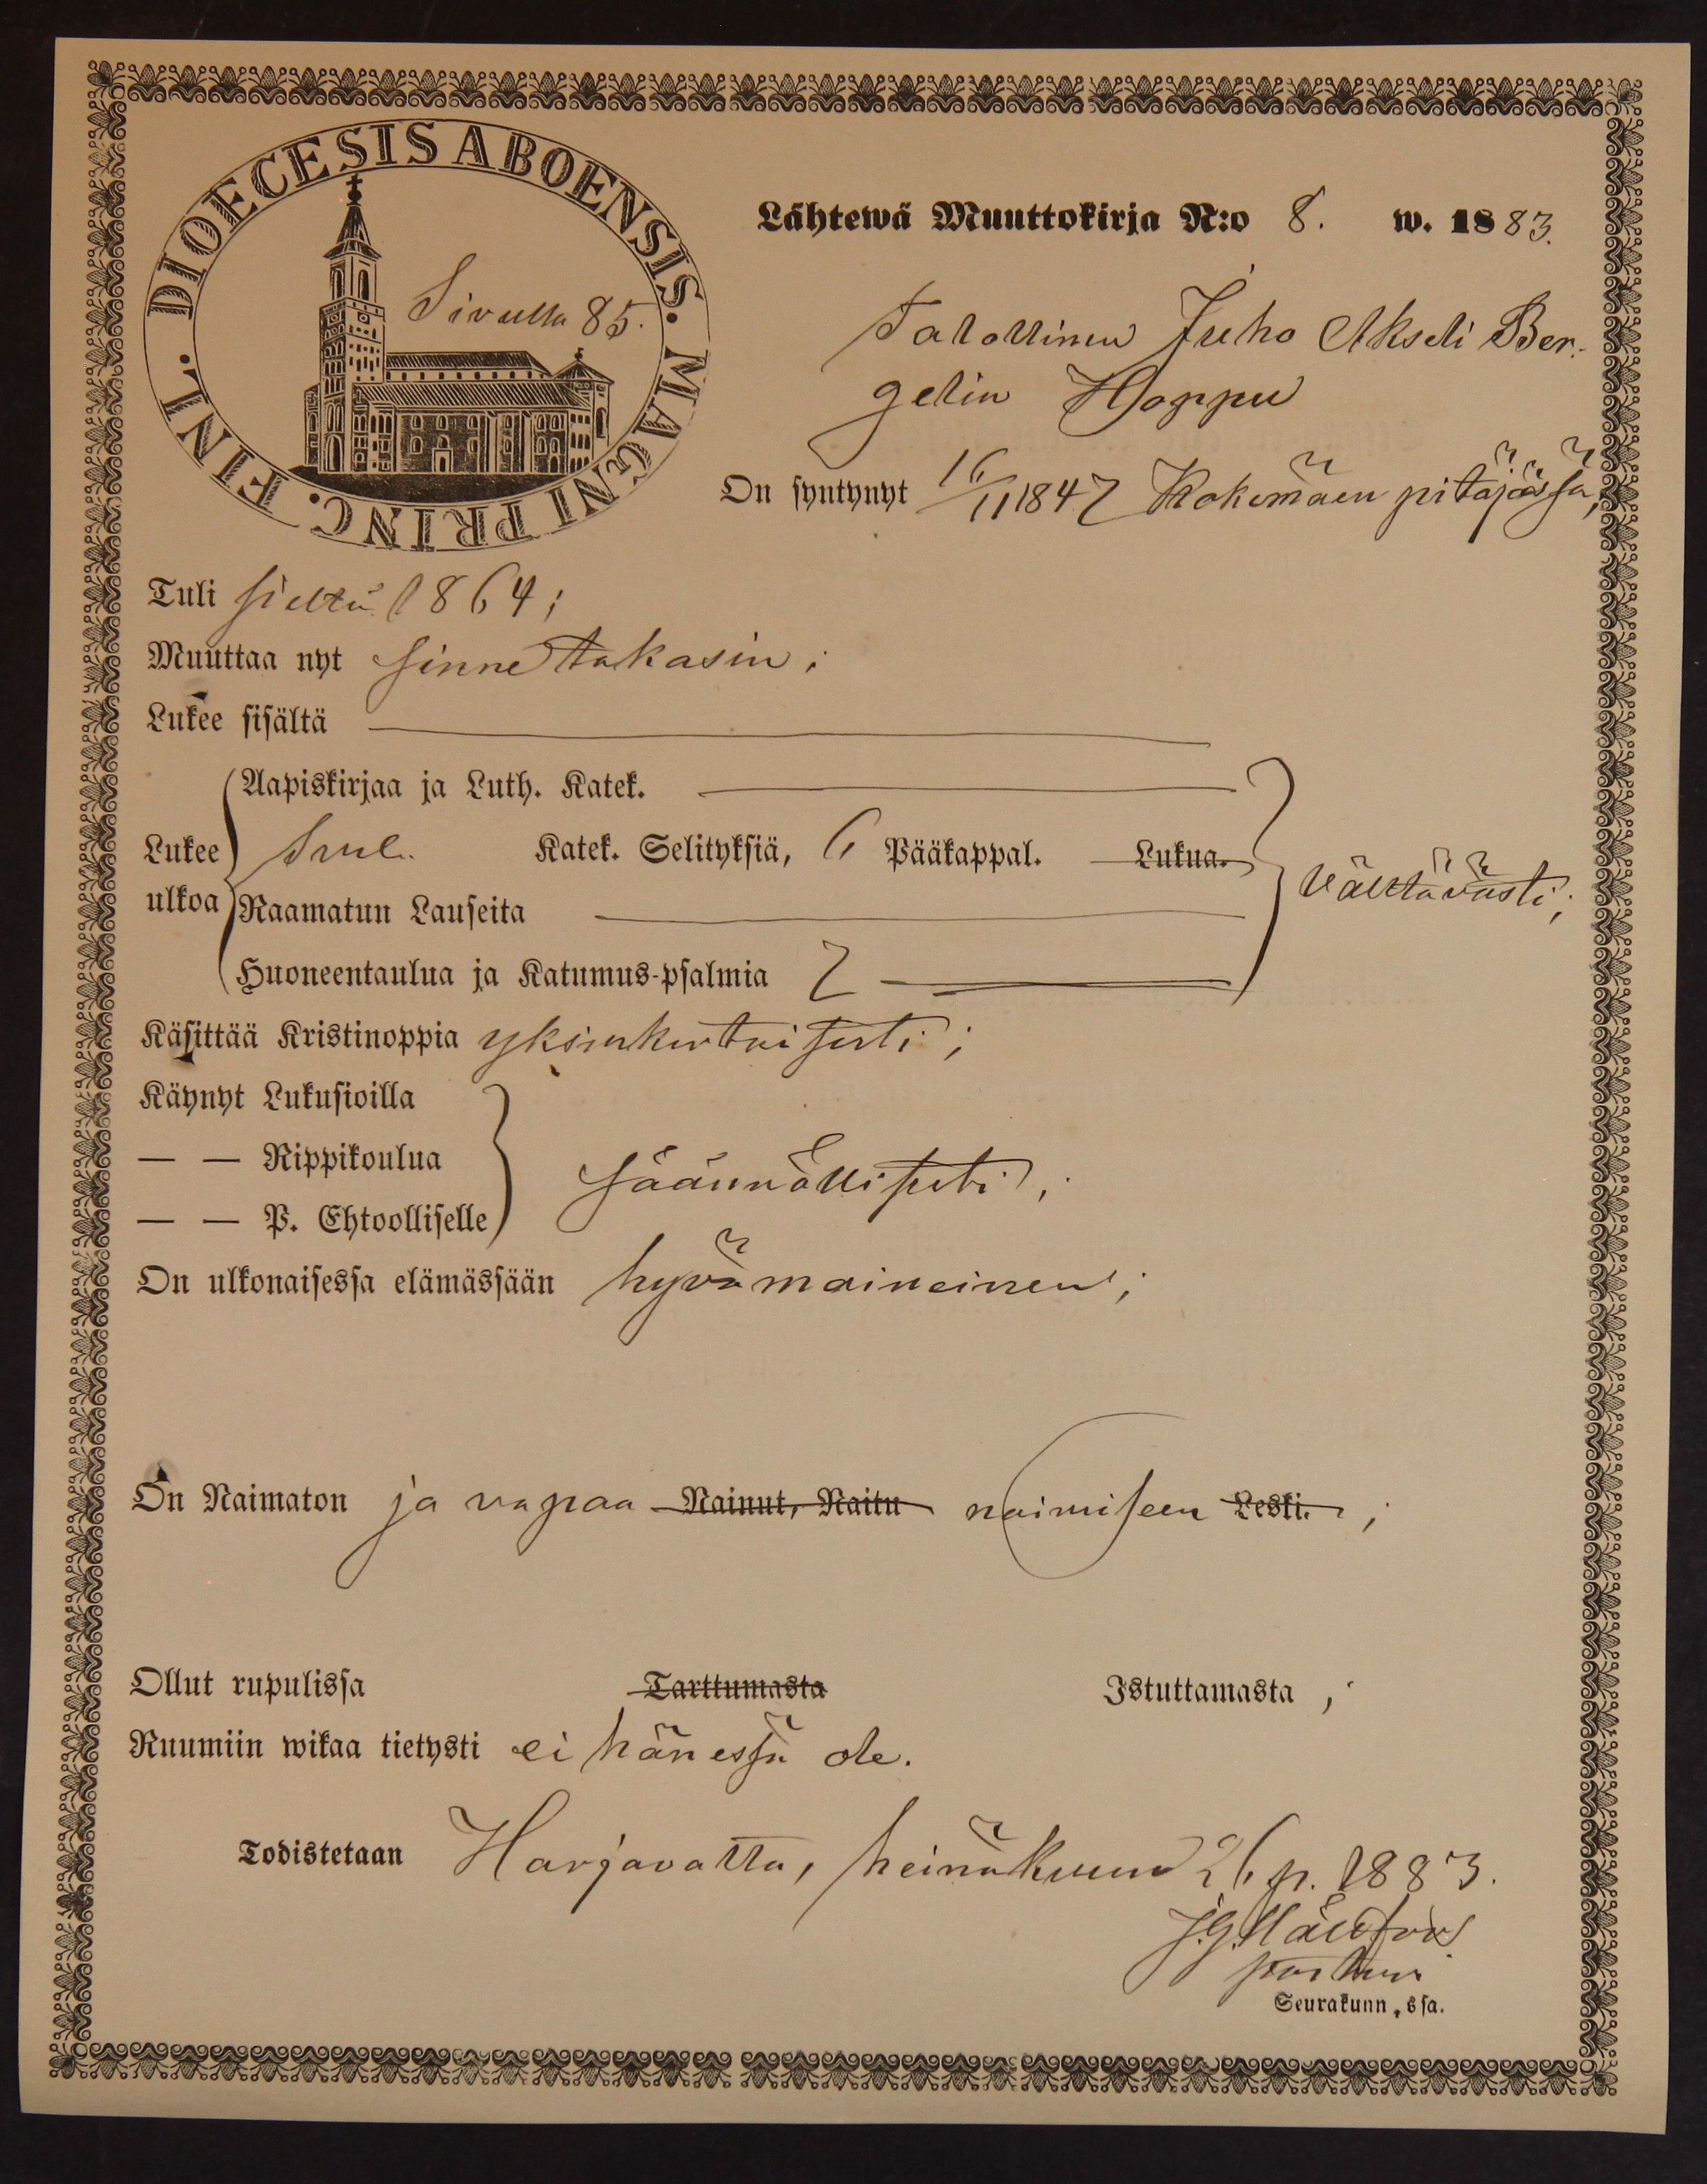 DIOECESIS ABOENSIS. MAGNI PRINC. FINL.
Sivulla 85.
Lähtewä Muuttokirja N:o 8. w. 1883.
Talollinen Juho Akseli Ber-
gelin Hoppu
On syntynyt 16/11 1847 Kokemäen pitäjässä,
Tuli sieltä 1864;
Muuttaa nyt sinne takasin;
Lukee sisältä
Aapiskirjaa ja Luth. Katek.
Lukee ulkoa
Katek. Selityksiä, 6 Pääkappal. Lukua.
Välttävästi;
Raamatun Lauseita
Huoneentaulua ja Katumus-psalmia 7
Käsittää Kristinoppia yksinkertaisesti;
Käynyt Lukusioilla
— — Rippikoulua
säännöllisesti;
— — P. Ehtoolliselle
On ulkonaisessa elämässään hyvämaineinen;
On Naimaton ja vapaa Nainut, Naitu naimiseen Leski. ;
Ollut rupulissa Tarttumasta Istuttamasta ;
Ruumiin wikaa tietysti ei hänessä ole.
Todistetaan Harjavalta, heinäkuun 26 p. 1883.
J.G.
pastori
Seurakunn. ssa.